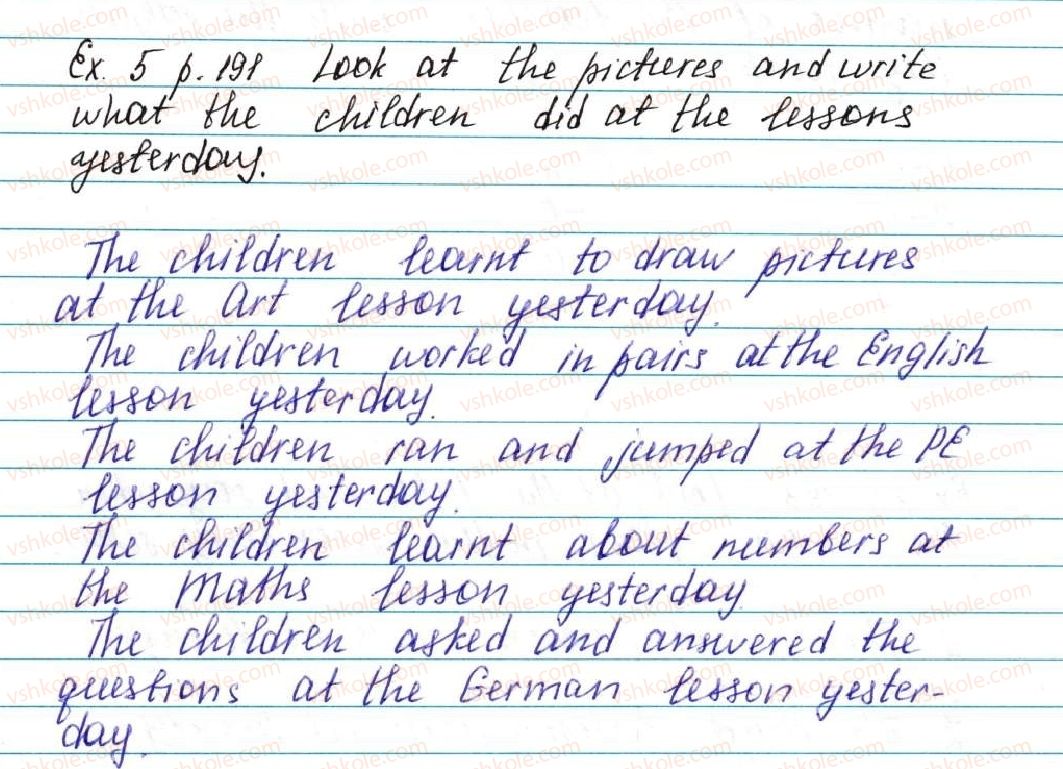 Ex. 5 p. 191 Look at the pictures and write
what the children did at the lessons
yesterday.
The children learnt to draw pictures
at the Art lesson yesterday.
The children worked in pairs at the English
lesson yesterday.
The children ran and jumped at the PE
lesson yesterday.
The children learnt about numbers at
the Maths lesson yesterday.
The children asked and answered the
questions at the German lesson yester-
day.